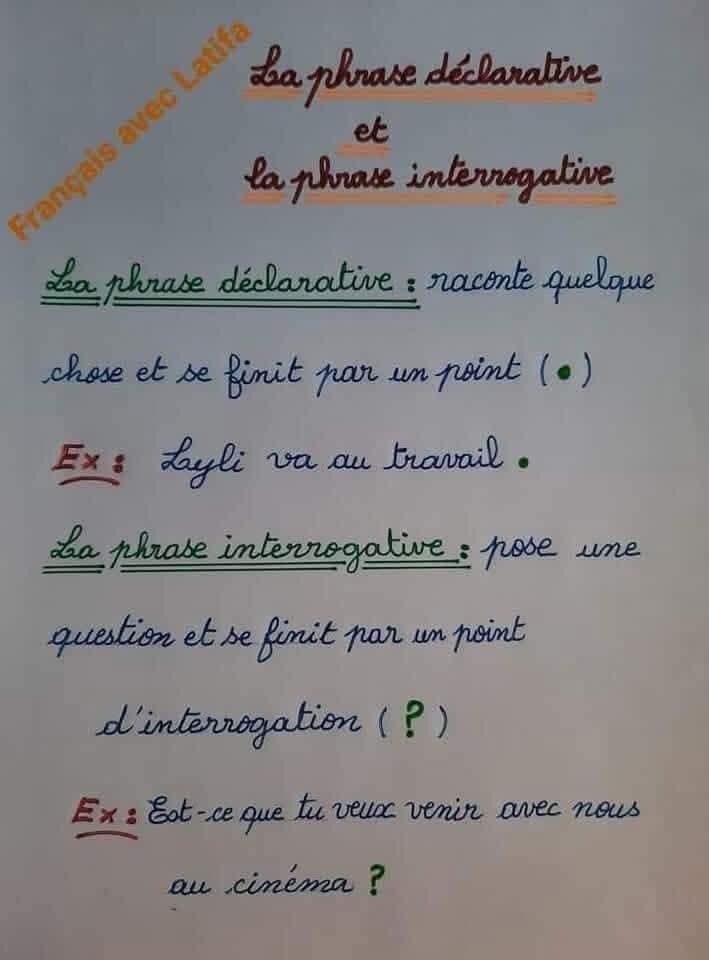 Français avec Latifa
La phrase déclarative
et
la phrase interrogative
La phrase déclarative : raconte quelque
chose et se finit par un point (.)
Ex : Lyli va au travail .
La phrase interrogative : pose une
question et se finit par un point
d'interrogation ( ? )
Ex : Est-ce que tu veux venir avec nous
au cinéma ?